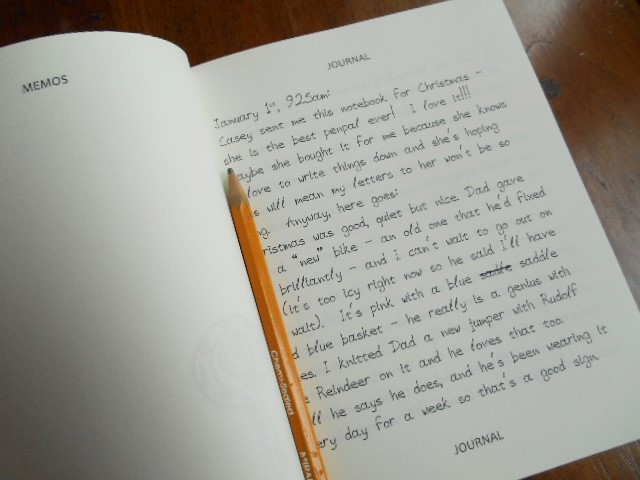 MEMOS
JOURNAL
January 1st, 925am:
Casey sent me this notebook for Christmas –
she is the best penpal ever! I love it!!!
aybe she bought it for me because she knows
love to write things down and she's hoping
s will mean my letters to her won't be so
ng. Anyway, here goes:
ristmas was good, quiet but nice. Dad gave
a "new" bike – an old one that he'd fixed
brilliantly – and I can't wait to go out on
(it's too icy right now so he said I'll have
wait). It's pink with a blue sadle saddle
d blue basket – he really is a genius with
es. I knitted Dad a new jumper with Rudolf
e Reindeer on it and he loves that too.
ll he says he does, and he's been wearing it
ery day for a week so that's a good sign
JOURNAL
Chem-Sealed